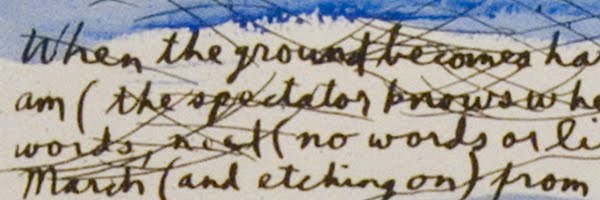 When the ground becomes ha
am ( the spectator knows whe
words, next (no words or li
March (and etching on) from